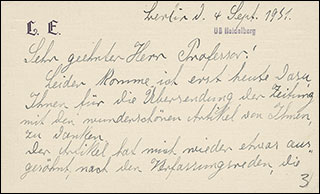 Berlin d. 4 Sept. 1931.
L. E.
UB Heidelberg
Sehr geehrter Herr Professor!
Leider komme ich erst heute dazu
Ihnen für die Übersendung der Zeitung
mit den wunderschönen Artikel von Ihnen,
zu danken.
Der Artikel hat mich wieder etwas aus-
gesöhnt, nach den Verfassungsreden, die
3)